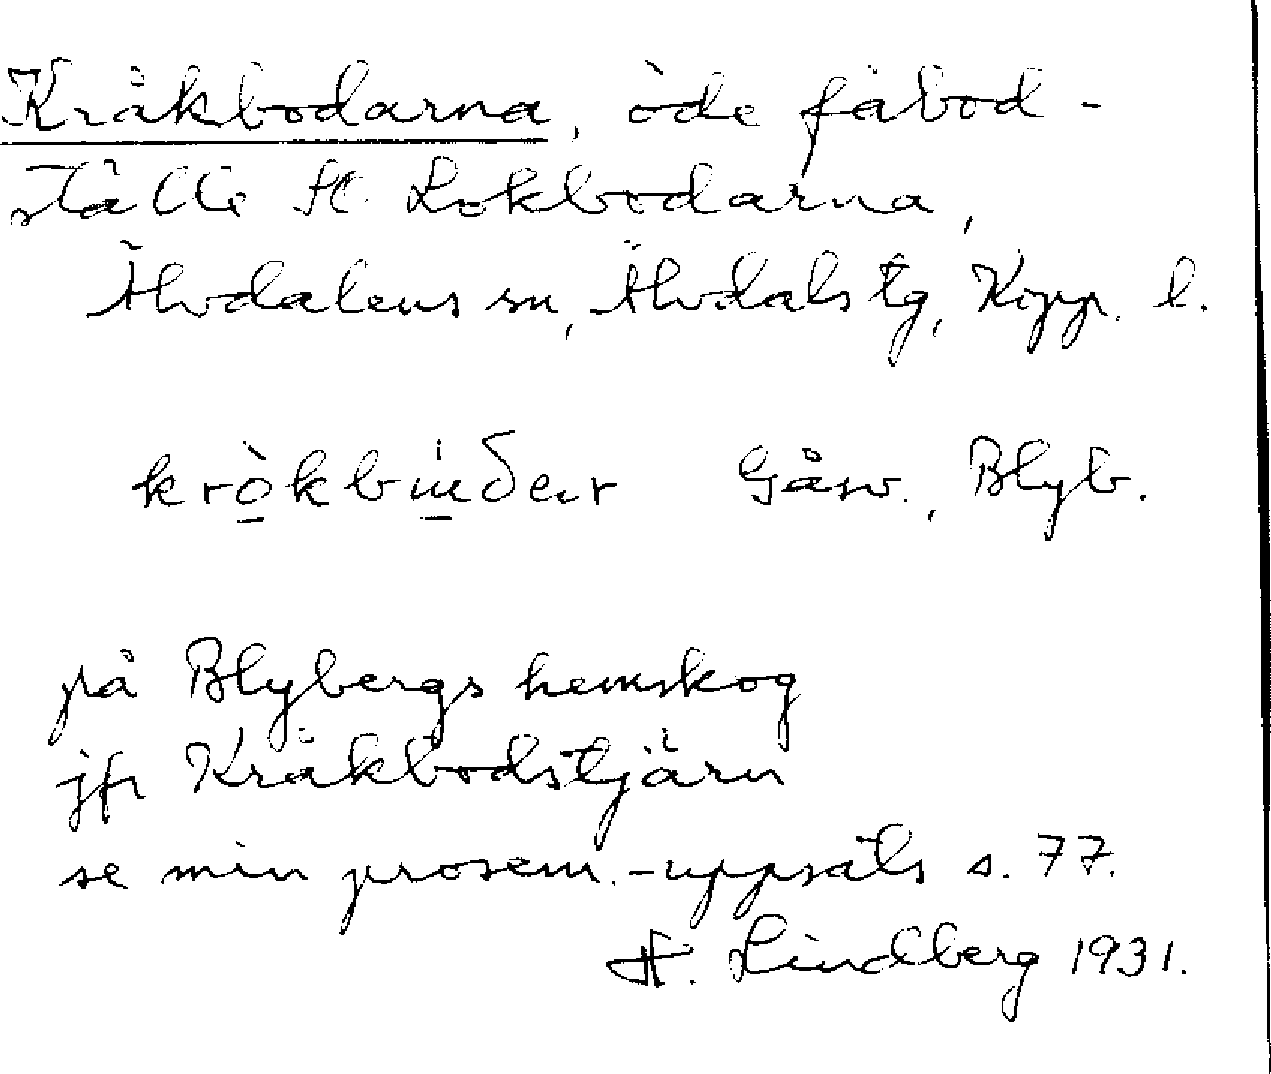 Kråkbodarna, öde fäbod-
ställe N. Lokbodarna,
Älvdalens sn, Älvdals tg, Kopp. l.
krò̱kbu̱ðer Gåsv., Blyb.
på Blybergs hemskog
jfr Kråkbodstjärn
se min prosem.-uppsats s. 77.
H. Lindberg 1931.